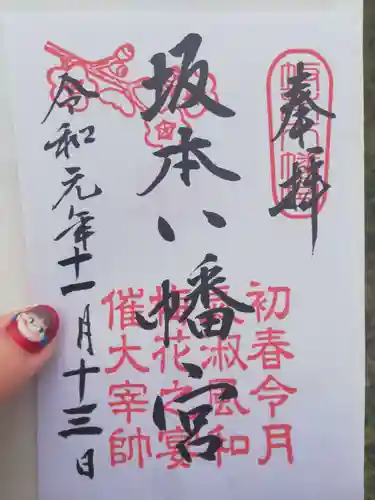 奉拝
初春令月
気淑風和
梅花之宴
催大宰帥
坂本八幡宮
令和元年十一月十三日